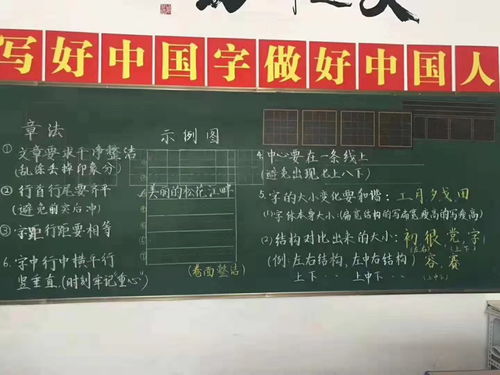 写好中国字做好中国人
章法
① 文章要求干净整洁
(乱涂丢掉印象分)
② 行首行尾要齐平
(避免前突后冲)
③ 字距行距要相等
6. 字中行中横平行
竖垂直.(时刻牢记"重心")
示例图
美丽的松花江畔
(卷面整洁)
4. 中心要在一条线上
(避免出现,七上八下)
5. 字的大小变化要和谐: 工月夕戈,田
(1) 字体本身大小:(扁宽结构的写扁宽瘦高的写瘦高)
(2) 结构对比出来的大小: 初 很 党, 字
(例: 左右结构, 左中右结构) 容, 赛
上下 上中下